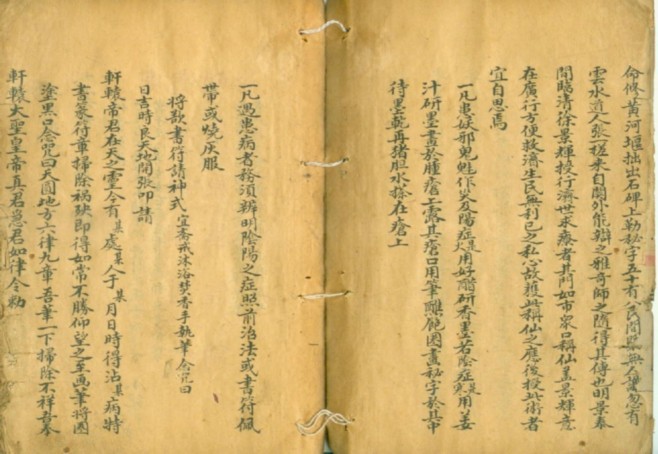 命修黃河堰掘出石碑上勒秘字五十有八民間無人識忽有
雲水道人張槎來自關外能辯之雅奇師之隨得其傳也明景泰
間臨清徐景輝授行濟世求療者其門如市衆口稱仙蓋景輝意
在廣行方便救濟生民無利己之私心故獲此稱仙之應後授此術者
宜自思焉
一凡患妖邪鬼魅作災及陽症是火用好醋研香墨若陰症是寒用姜
汁研墨畫於腫瘡上露其瘡口用筆蘸飽圈畫秘字於其中
待墨乾再猪胆水搽在瘡上
一凡遇患病者務須辨明陰陽之症照前治法或書符佩
帶或燒灰服
將欲書符請神式 宜齋戒沐浴焚香手執筆念咒曰
日吉時良天地開張叩請
軒轅帝君在天之靈今有某處某人于某月日時得沾某病特
書篆符筆掃除禍殃即得如常不勝仰望之至画筆將圈
塗黑口念咒曰天圓地方六律九章吾筆一下掃除不祥吾奉
軒轅大聖皇帝真君急君如律令勅